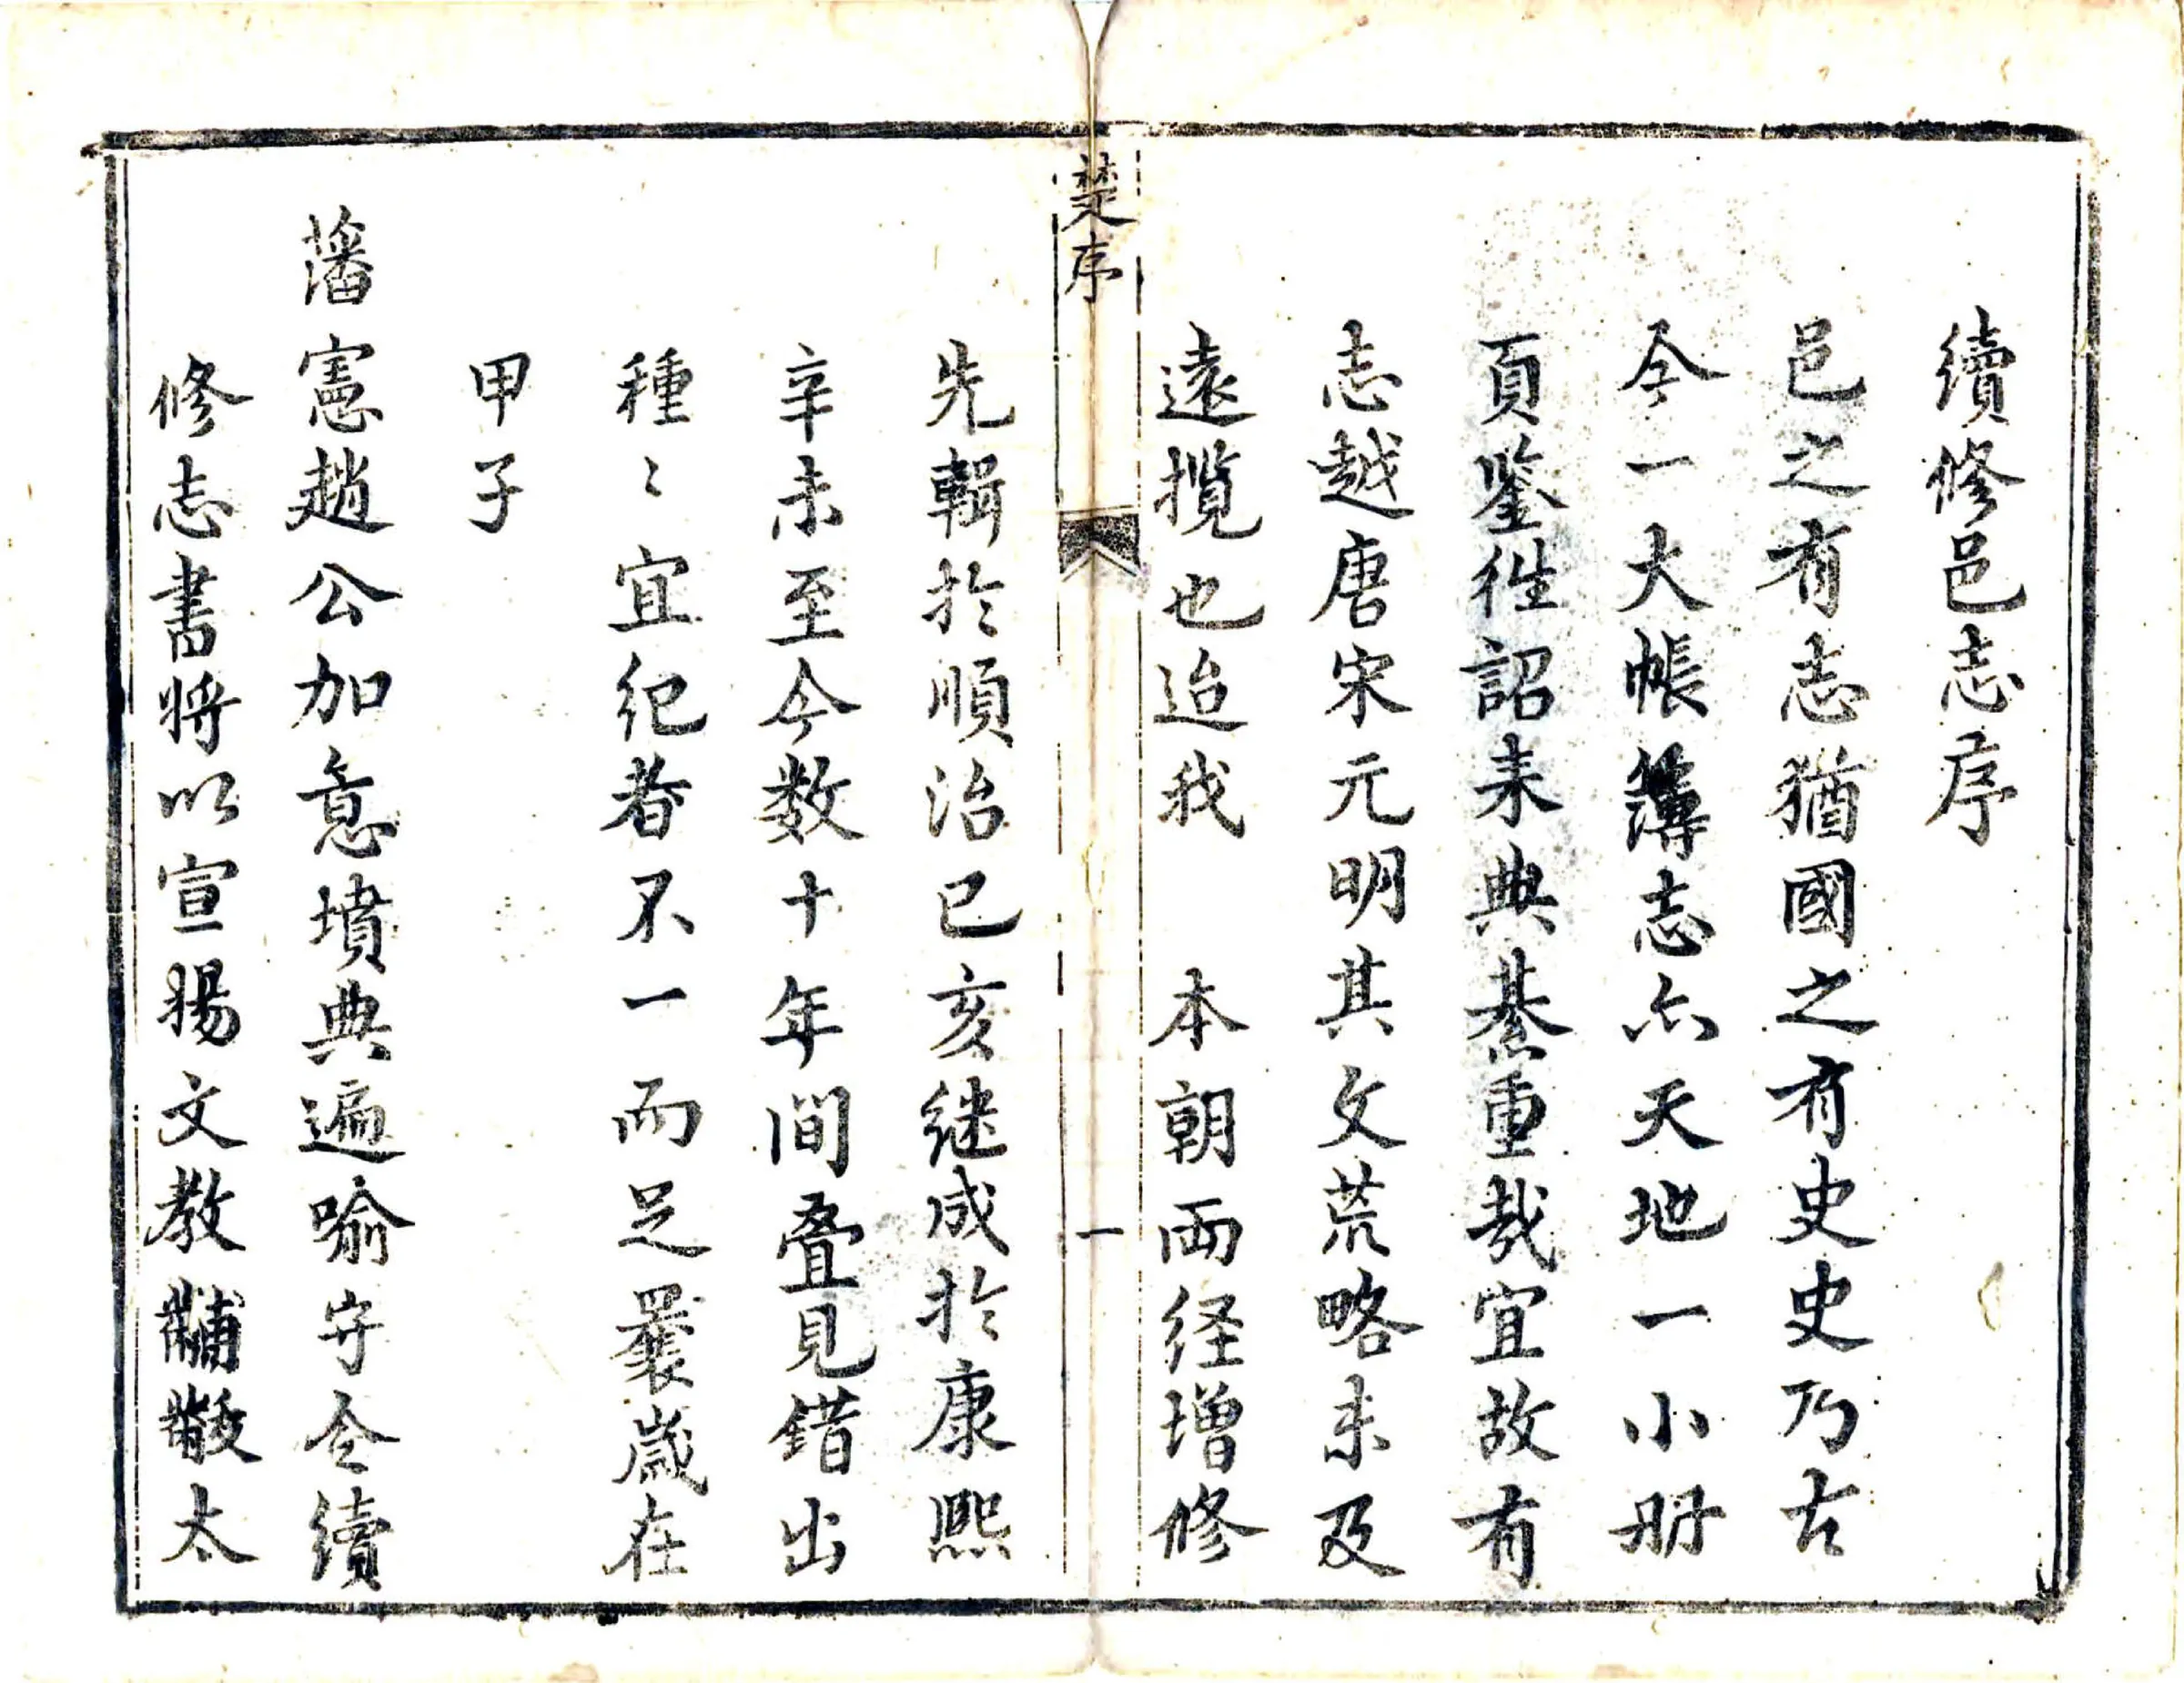 續修邑志序
邑之有志猶國之有史史乃古
今一大帳簿志亦天地一小册
頁鑒徃詔来典綦重哉宜故有
志越唐宋元明其文荒略未及
遠攬也迨我　本朝兩経增修
楚序
一
先輯於順治已亥继成於康熙
辛未至今数十年間叠見錯出
種〻宜紀者不一而足曩歲在
甲子
藩憲趙公加意墳典遍喻守令續
修志書将以宣揚文教黼黻太